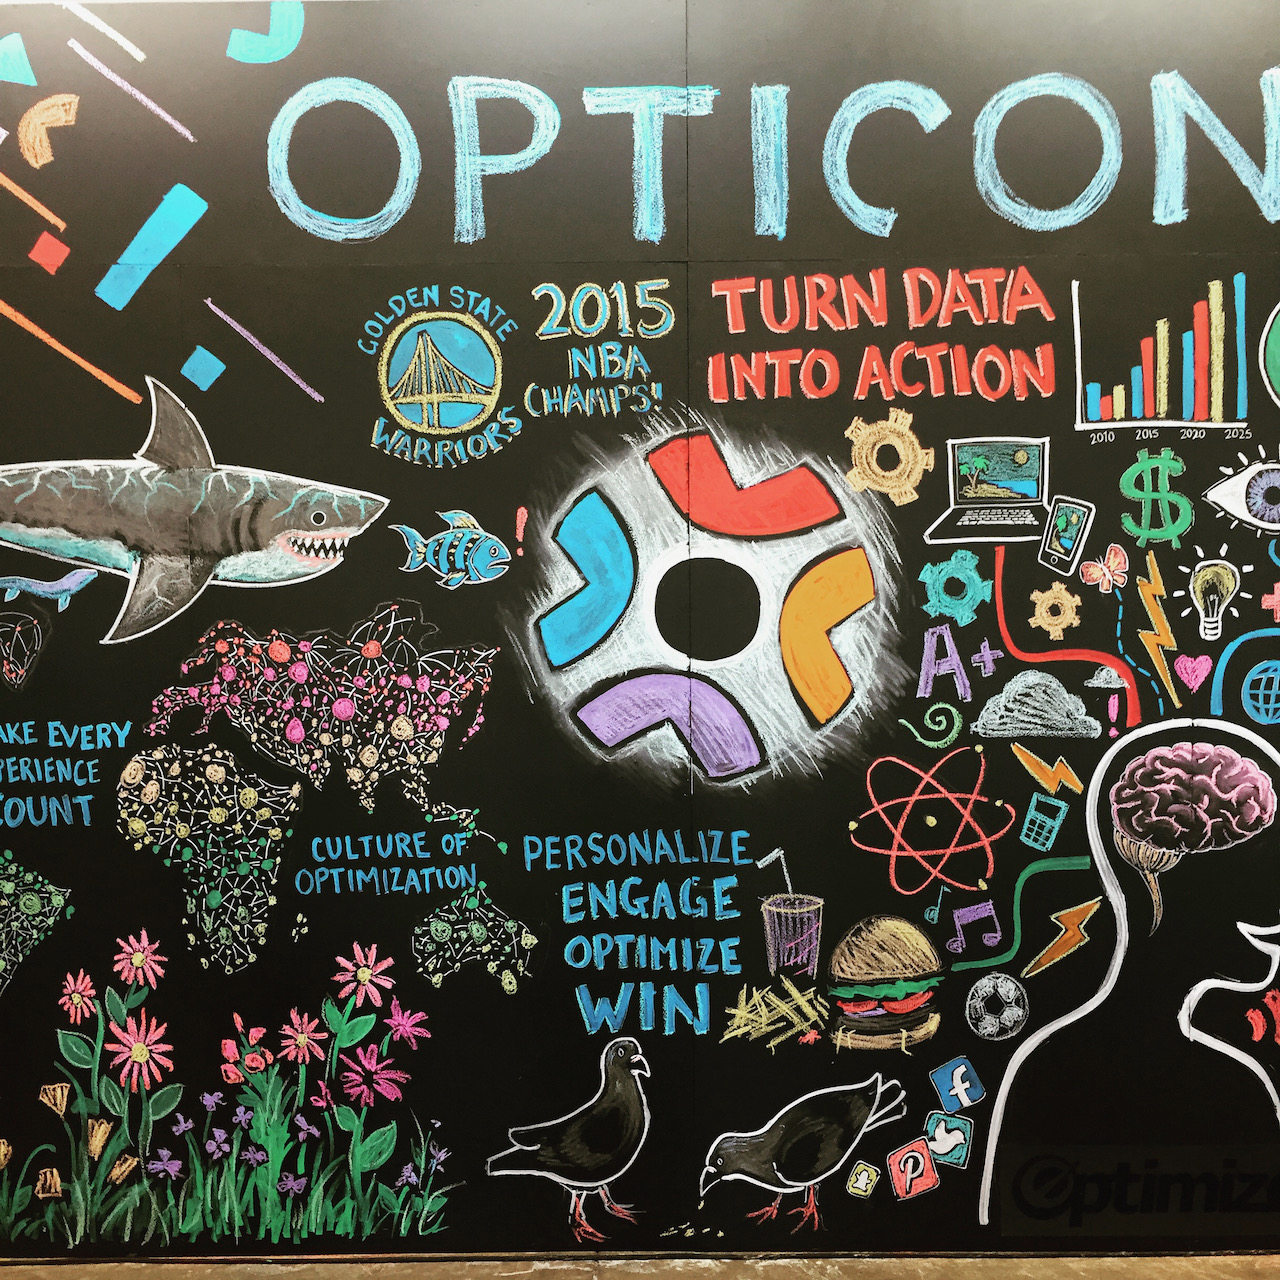 OPTICON
GOLDEN STATE
WARRIORS
2015
NBA
CHAMPS!
TURN DATA
INTO ACTION
2010 2015 2020 2025
$
A+
AKE EVERY
PERIENCE
COUNT
CULTURE OF
OPTIMIZATION
PERSONALIZE
ENGAGE
OPTIMIZE
WIN
f
optimize